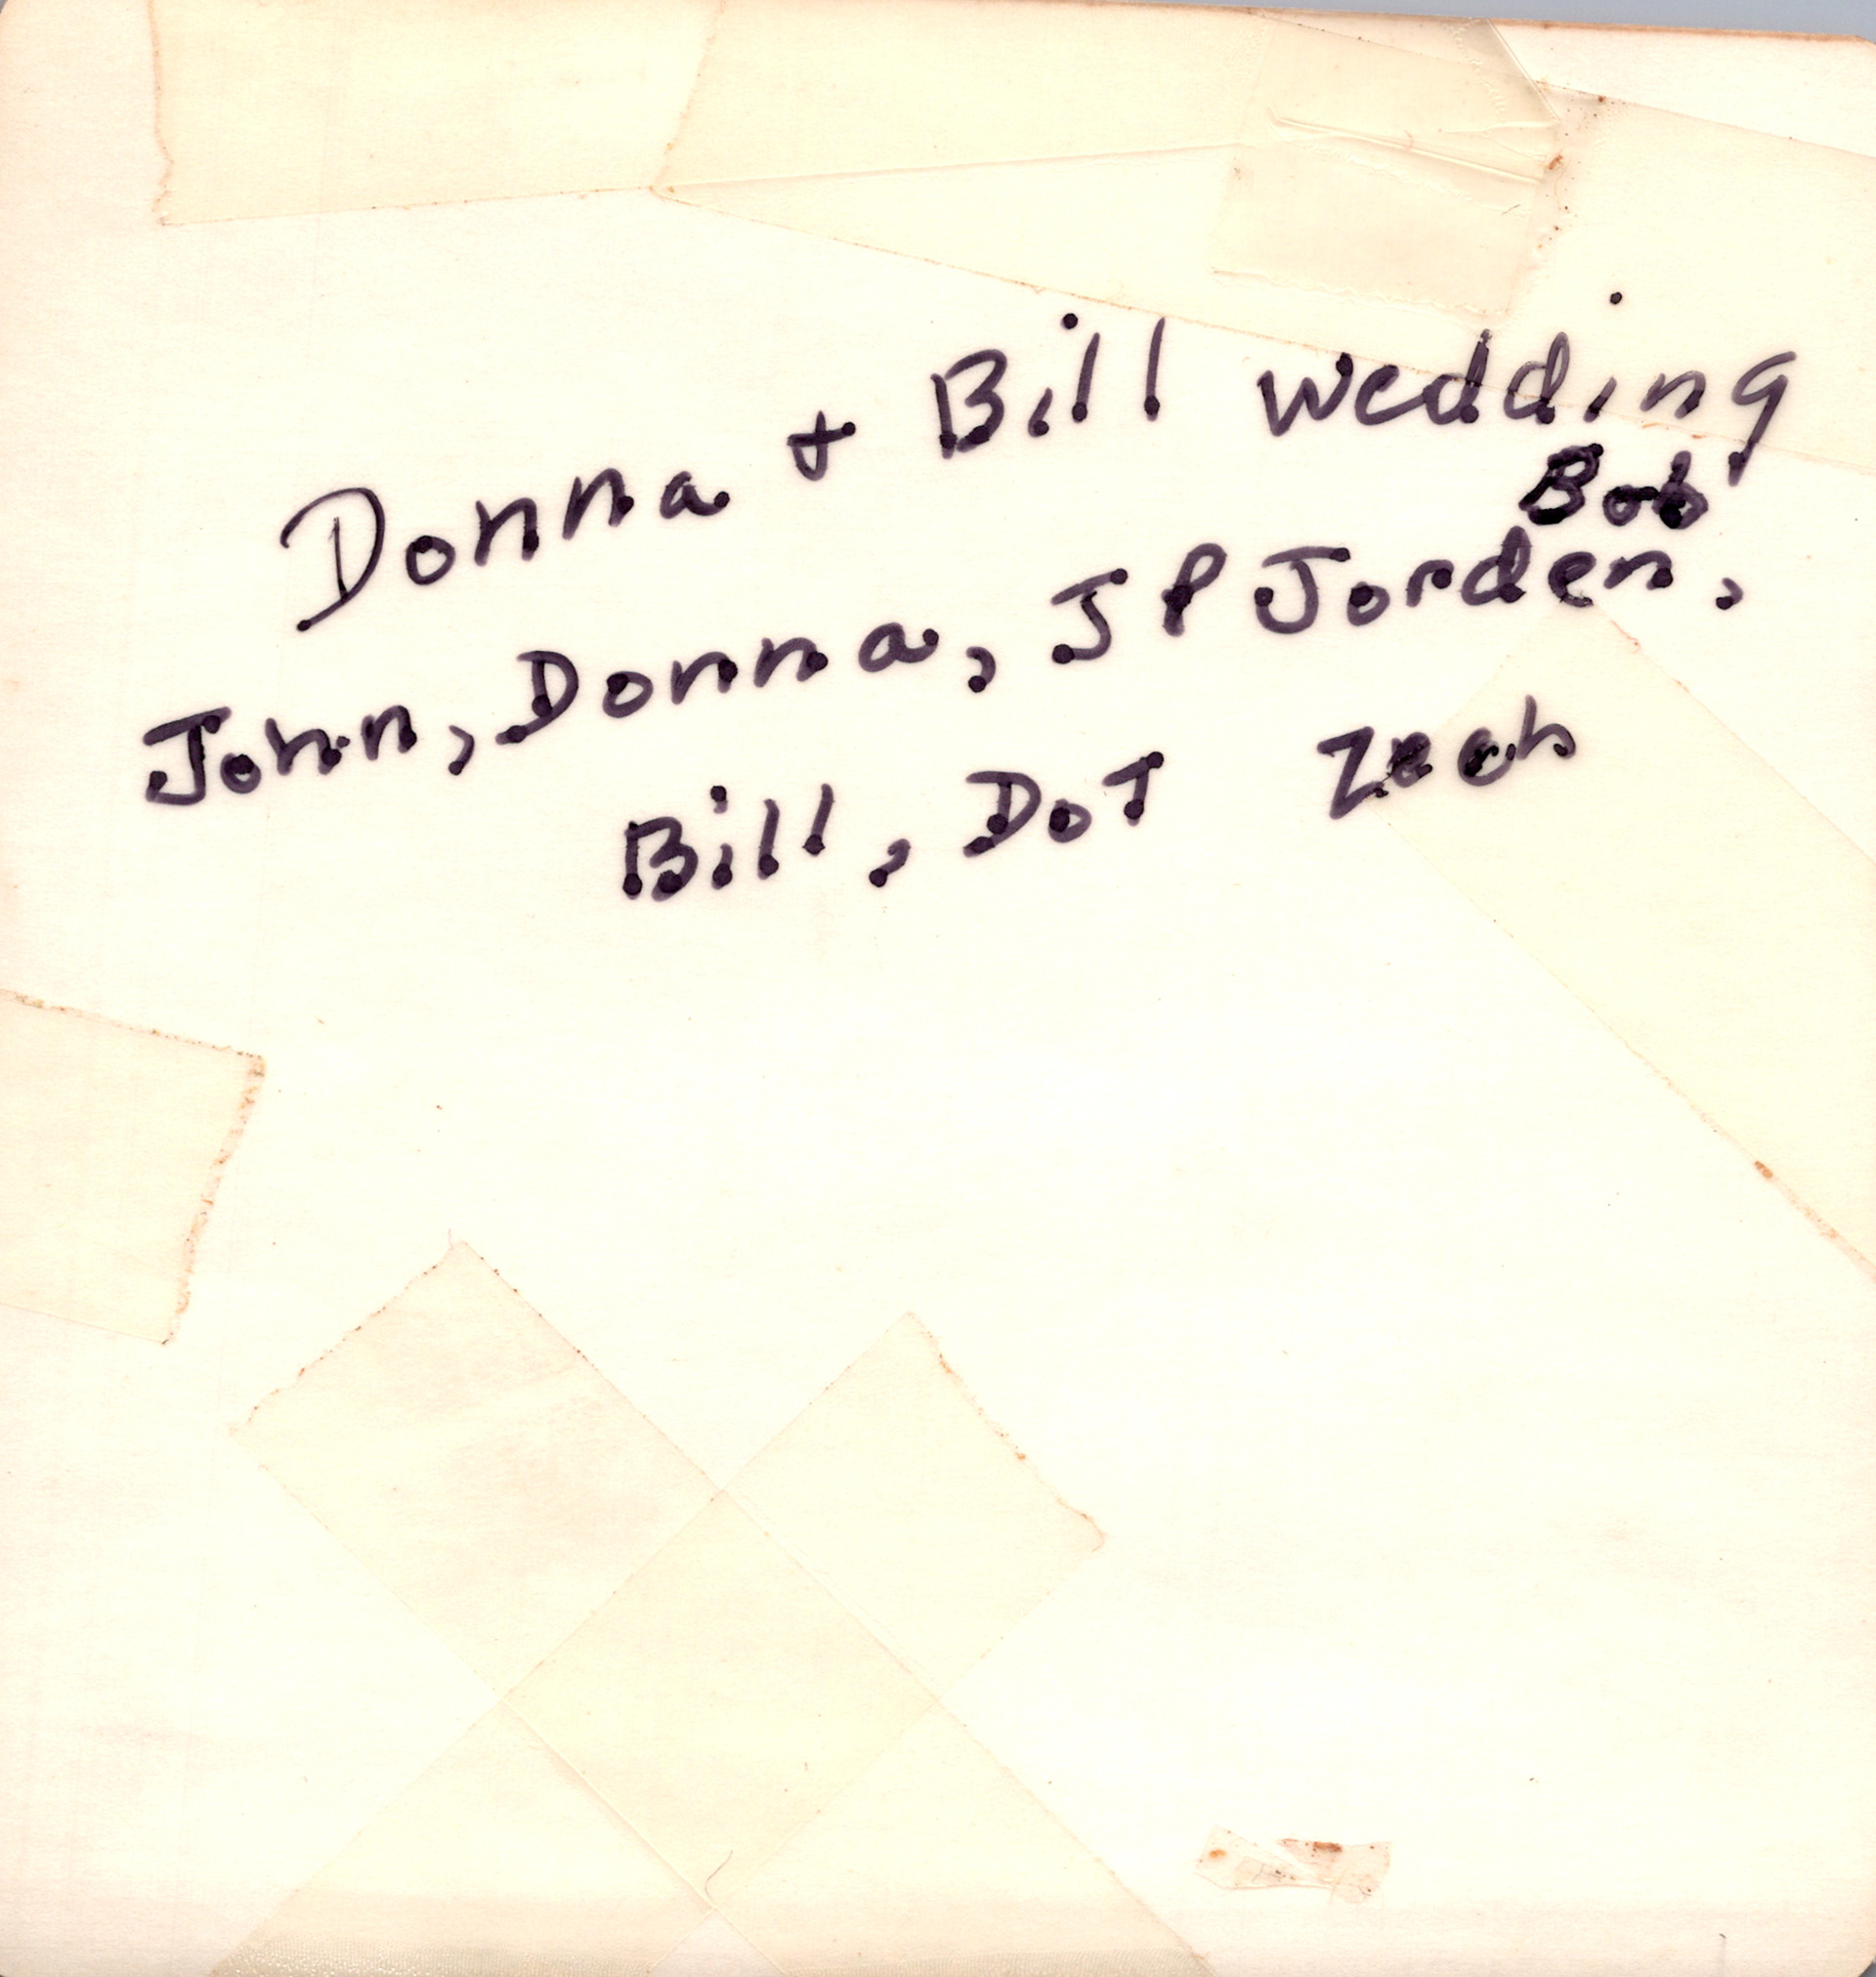 Donna + Bill wedding
Bob
John, Donna, JP Jorden,
Bill, DoT